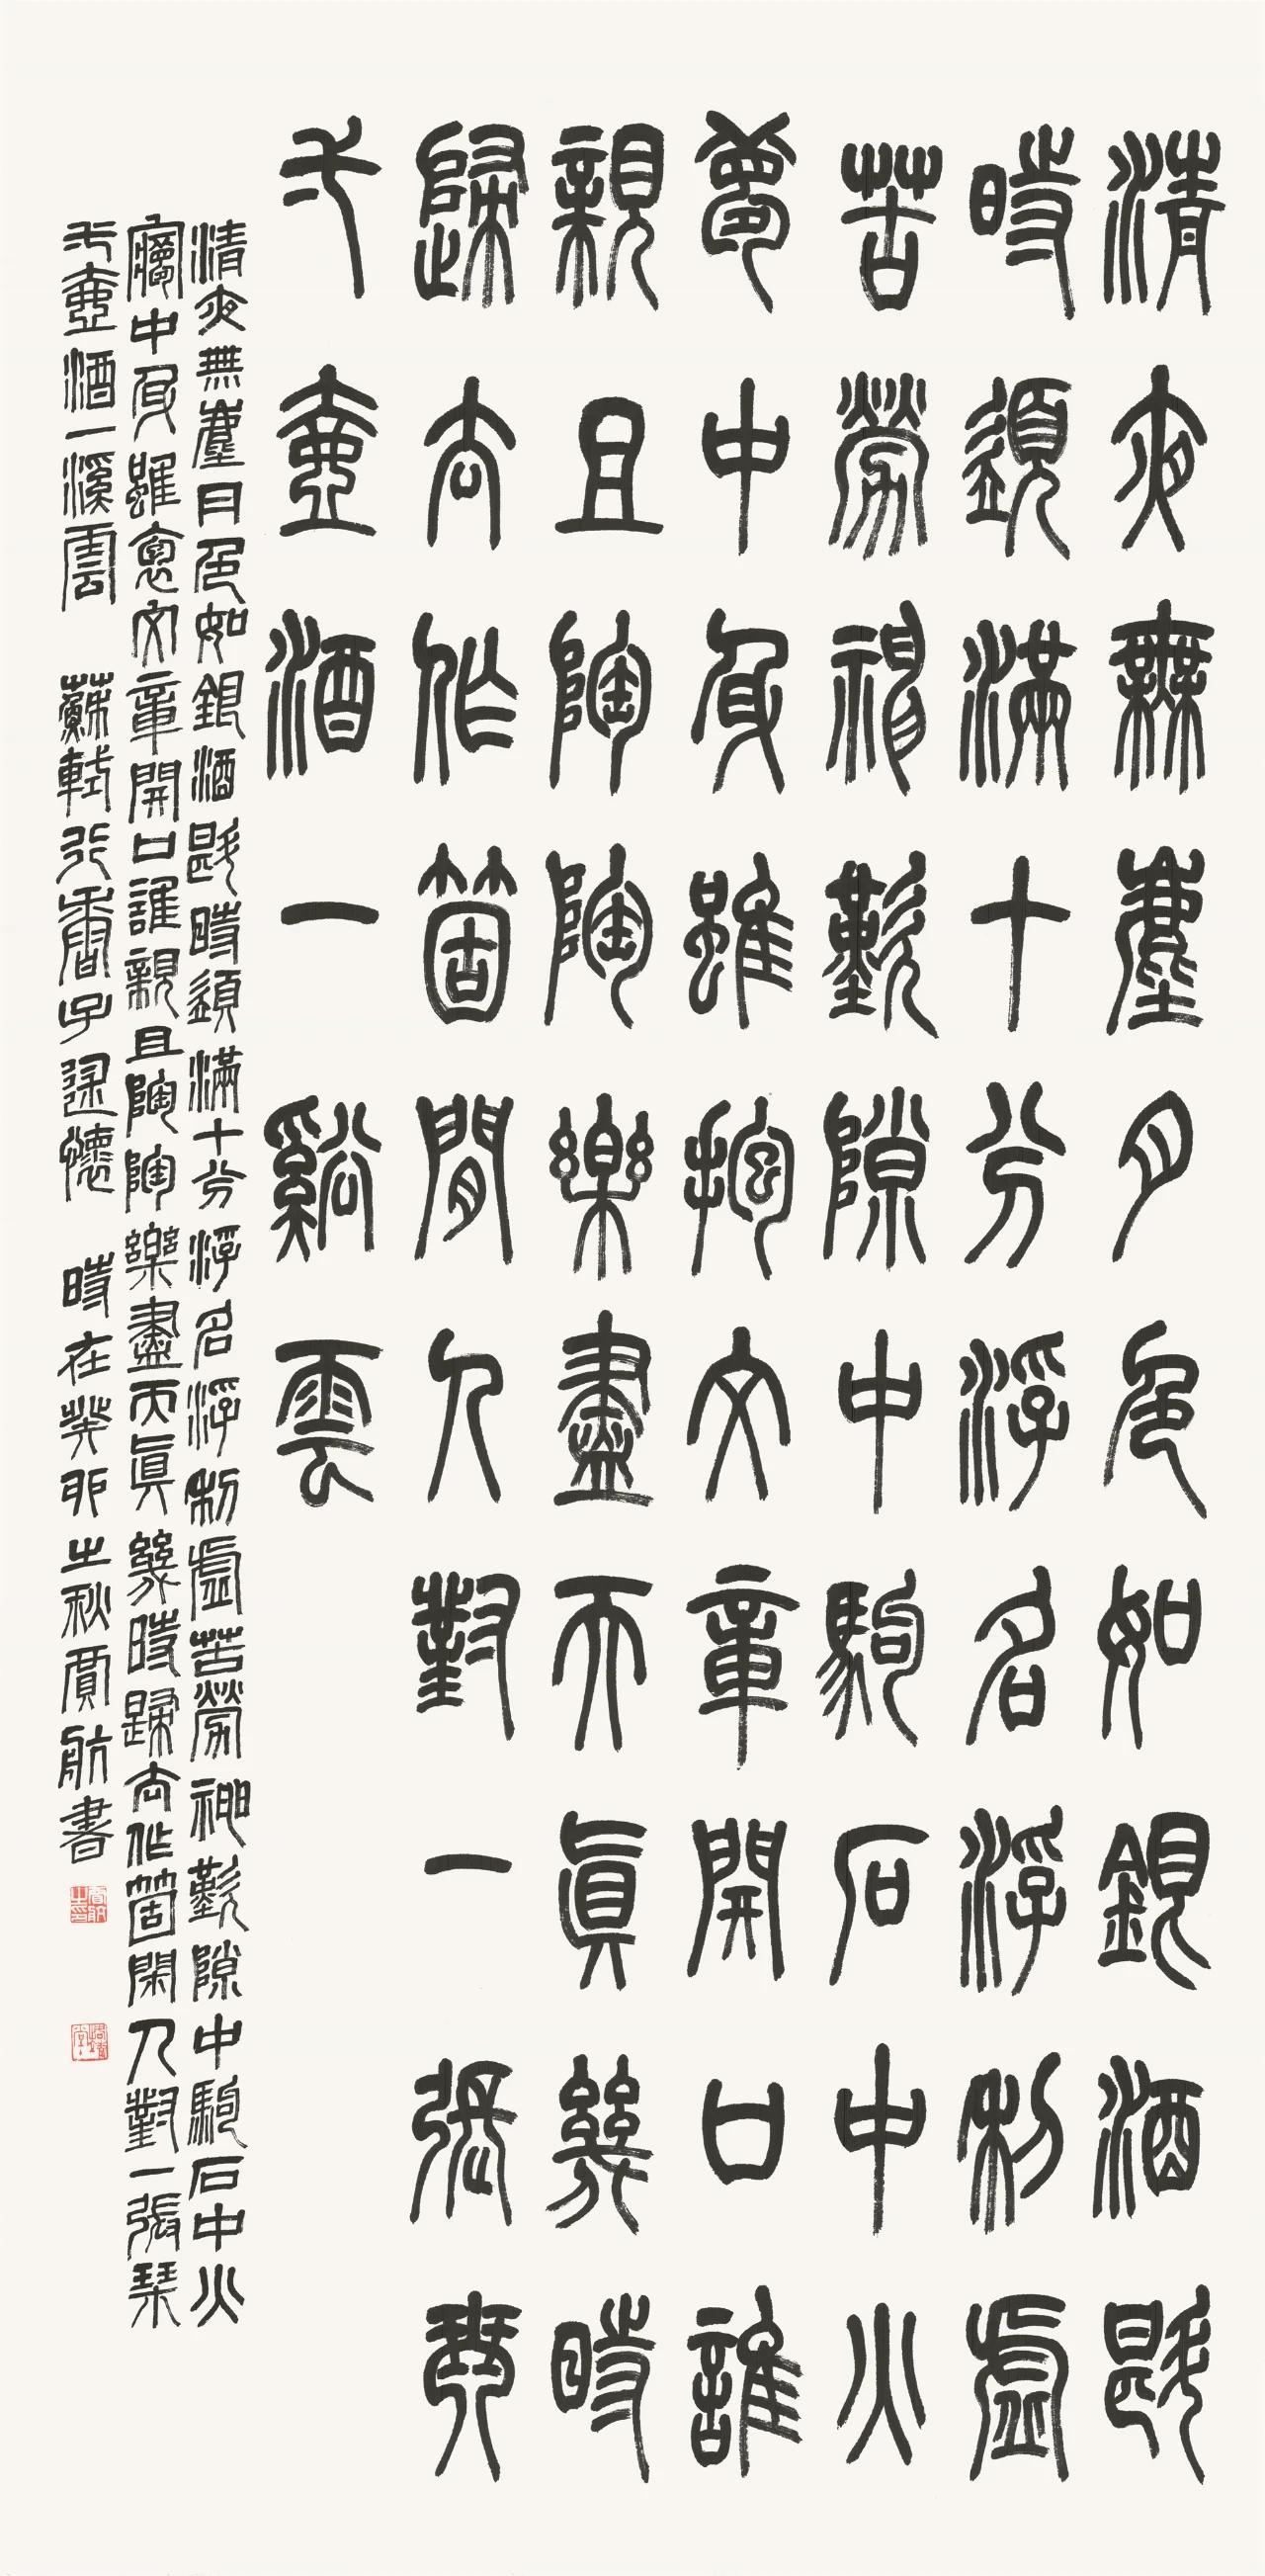 清夜無塵月色如銀酒斟
時須滿十分浮名浮利虛
苦勞神歎隙中駒石中火
夢中身雖抱文章開口誰
親且陶陶樂盡天真幾時
歸去作箇閒人對一張琴
弌壺酒一谿雲
清夜無塵月色如銀酒斟時須滿十分浮名浮利虛苦勞神歎隙中駒石中火
夢中身雖抱文章開口誰親且陶陶樂盡天真幾時歸去作箇閑人對一張琴
弌壺酒一溪雲 蘇軾行香子述懷 時在癸卯之秋賈航書
賈航之印